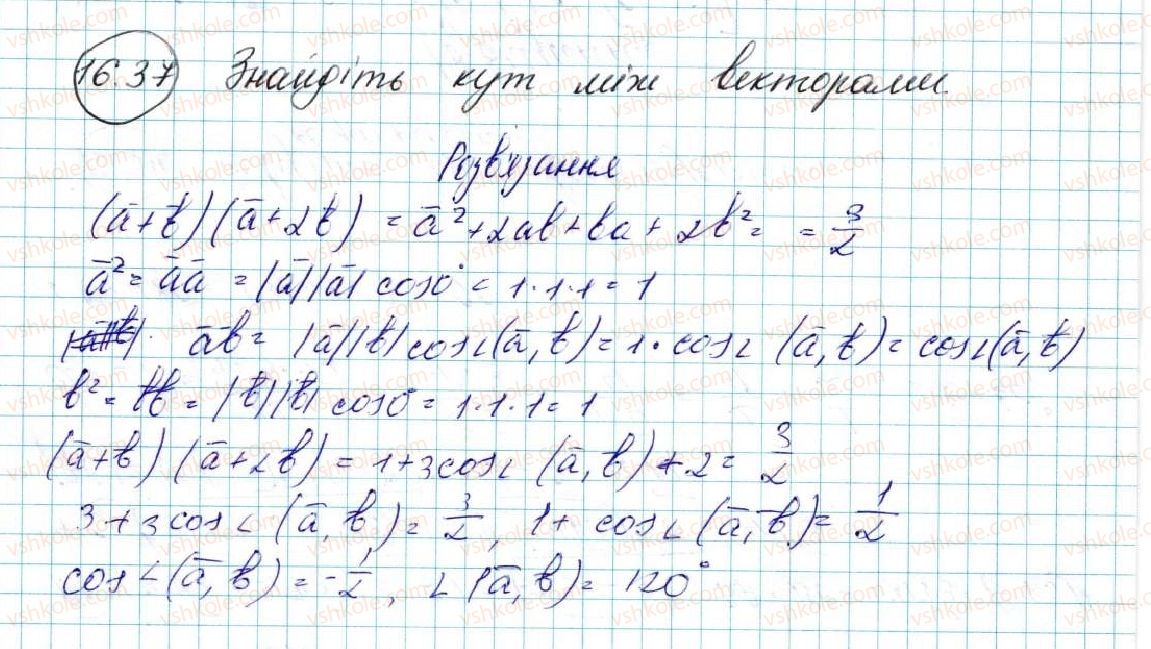 16.37 Знайдіть кут між векторами.
Розв'язання
(ā+b̄)(ā+2b̄) = ā²+2ab+ba+2b² = = 3/2
ā² = āā = |ā||ā| cos0° = 1·1·1 = 1
āb̄ = |ā||b̄| cos∠(ā, b̄) = 1·cos∠(ā, b̄) = cos∠(ā, b̄)
b̄² = b̄b̄ = |b̄||b̄| cos0° = 1·1·1 = 1
(ā+b̄)(ā+2b̄) = 1+3cos∠(ā, b̄)+2 = 3/2
3+3cos∠(ā, b̄) = 3/2, 1+cos∠(ā, b̄) = 1/2
cos∠(ā, b̄) = -1/2, ∠(ā, b̄) = 120°